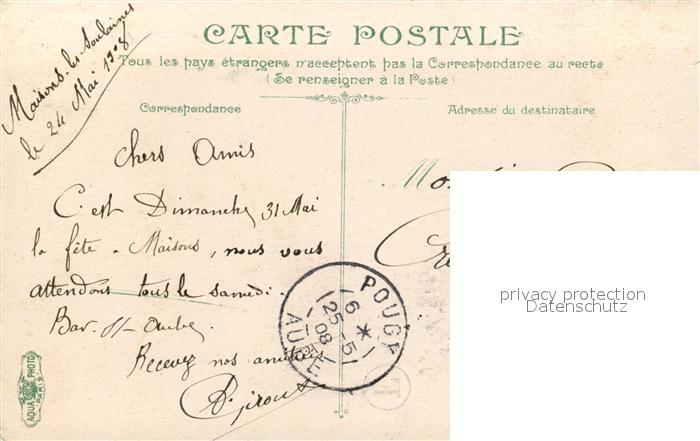 CARTE POSTALE
Tous les pays étrangers n'acceptent pas la Correspondance au recto
(Se renseigner à la Poste)
Correspondance
Adresse du destinataire
Maisons-les-Soulaines
le 24 Mai 1908
chers Amis
C'est Dimanche 31 Mai
la fête à Maisons, nous vous
attendons tous le samedi.
Bar s/ Aube.
Recevez nos amitiés
POUGY
6 *
25 -5
08
AUBE
AQUA PHOTO
PARIS
privacy protection
Datenschutz